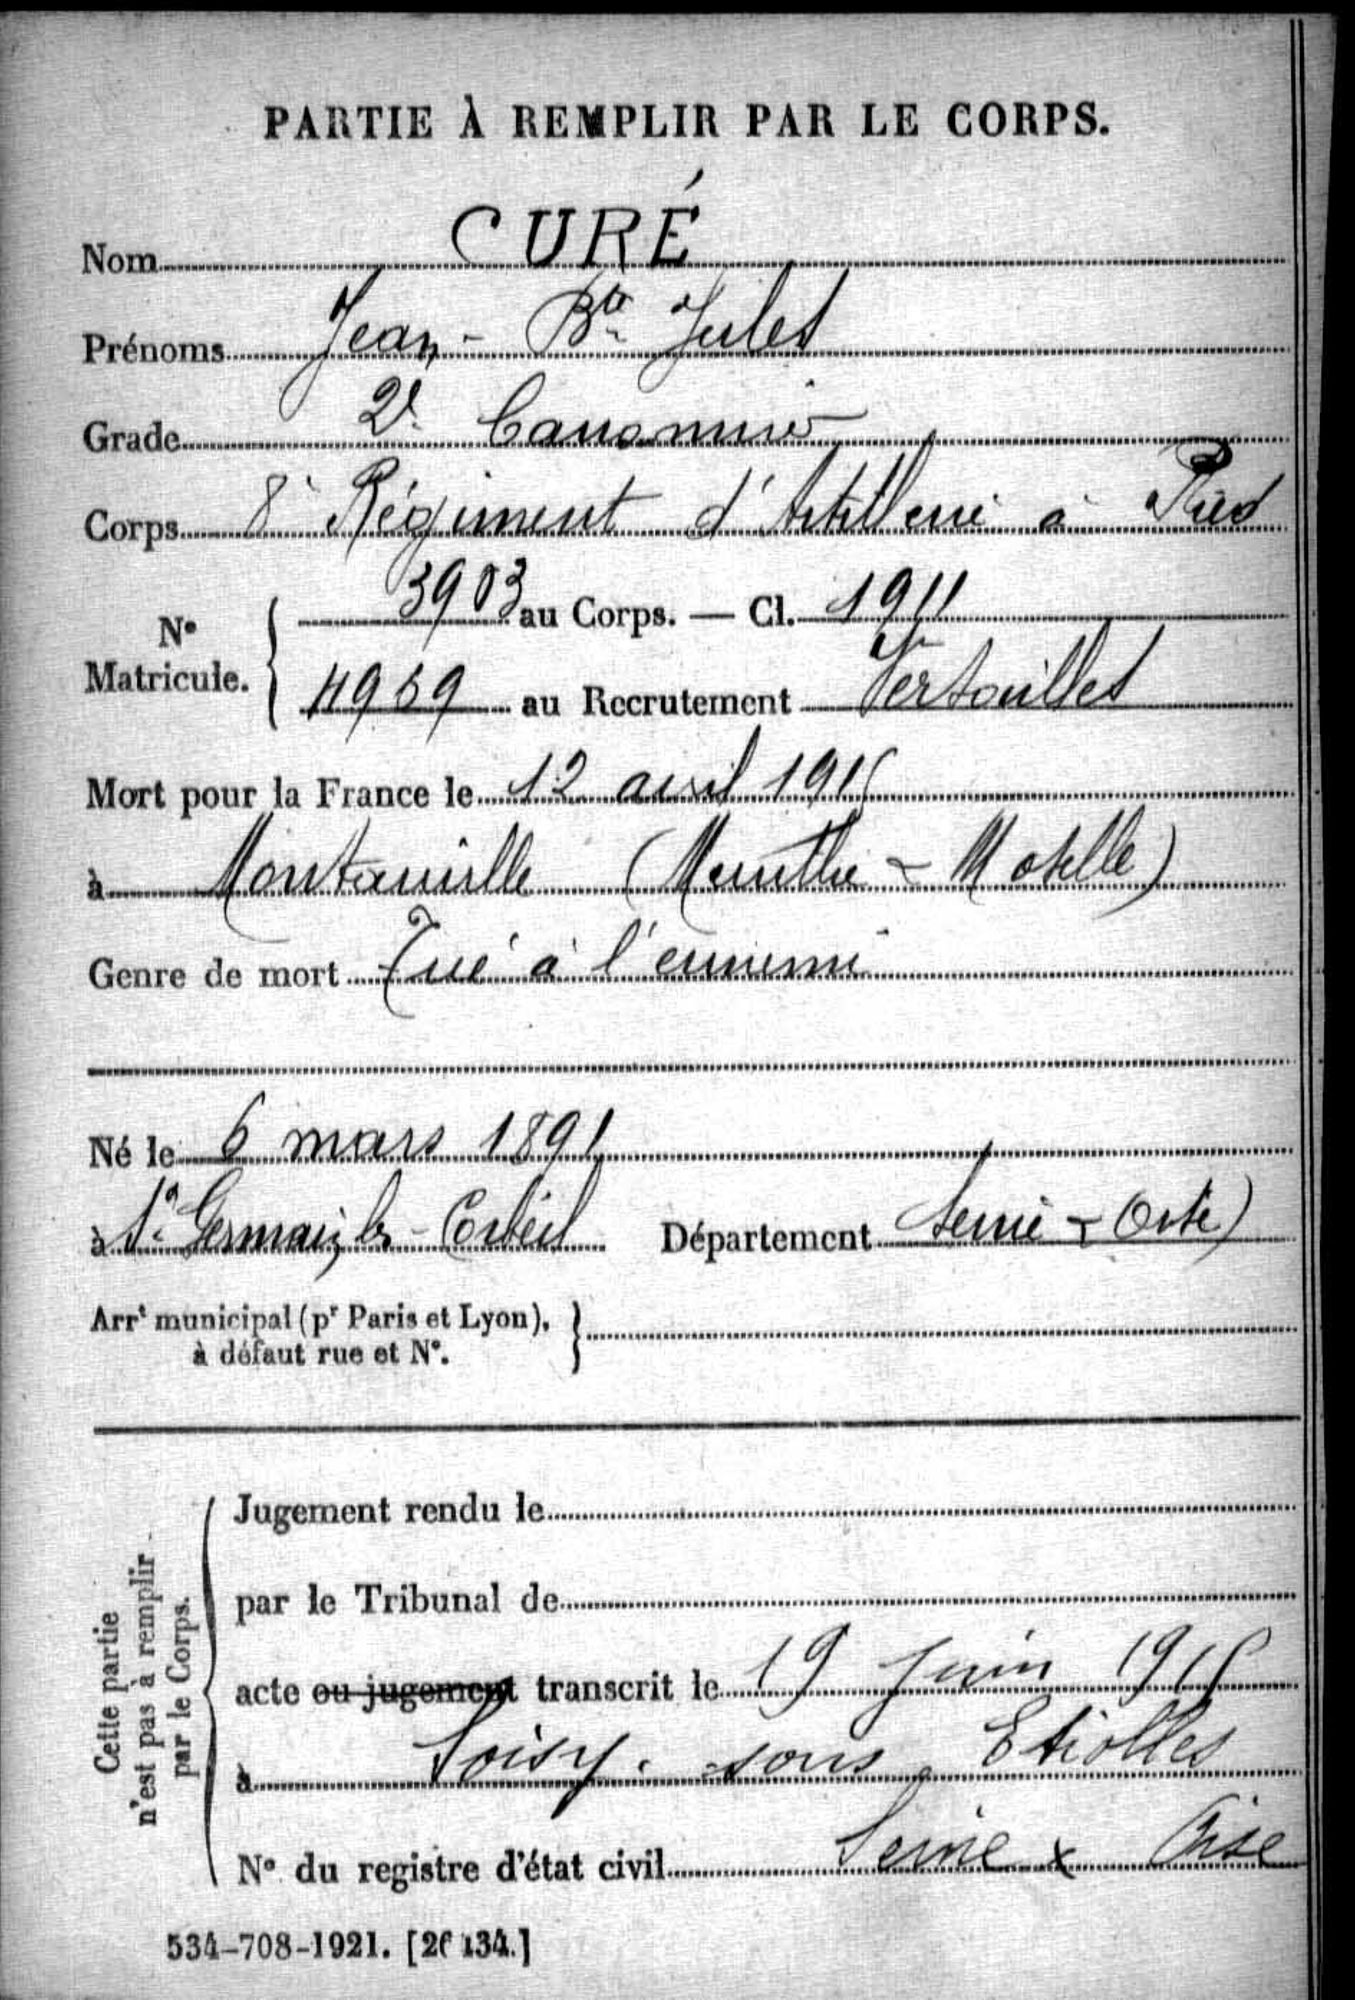 PARTIE À REMPLIR PAR LE CORPS.
Nom CURÉ
Prénoms Jean-Bte Jules
Grade 2e Canonnier
Corps 8e Régiment d'Artillerie à Pied
No Matricule. { 3903 au Corps. — Cl. 1911
4959 au Recrutement Versailles
Mort pour la France le 12 avril 1915
à Montauville (Meurthe & Moselle)
Genre de mort Tué à l'ennemi
Né le 6 mars 1891
à St Germain les-Corbeil Département Seine & Oise)
Arrt municipal (pr Paris et Lyon), }
à défaut rue et No.
Cette partie n'est pas à remplir par le Corps.
Jugement rendu le
par le Tribunal de
acte ou jugement transcrit le 19 juin 1915
à Soisy. sous Etiolles
No du registre d'état civil Seine & Oise
534-708-1921. [26134.]